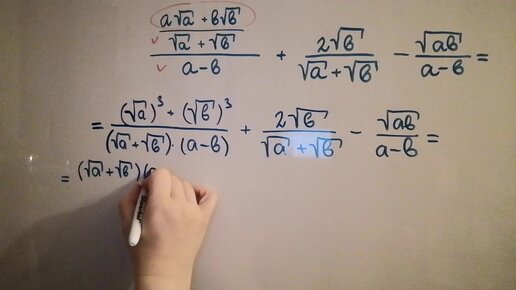 (a√a + b√b)/(√a + √b)/(a-b) + 2√b/(√a + √b) - √ab/(a-b) =
= ((√a)³ + (√b)³)/((√a + √b) · (a-b)) + 2√b/(√a + √b) - √ab/(a-b) =
= (√a + √b)(a